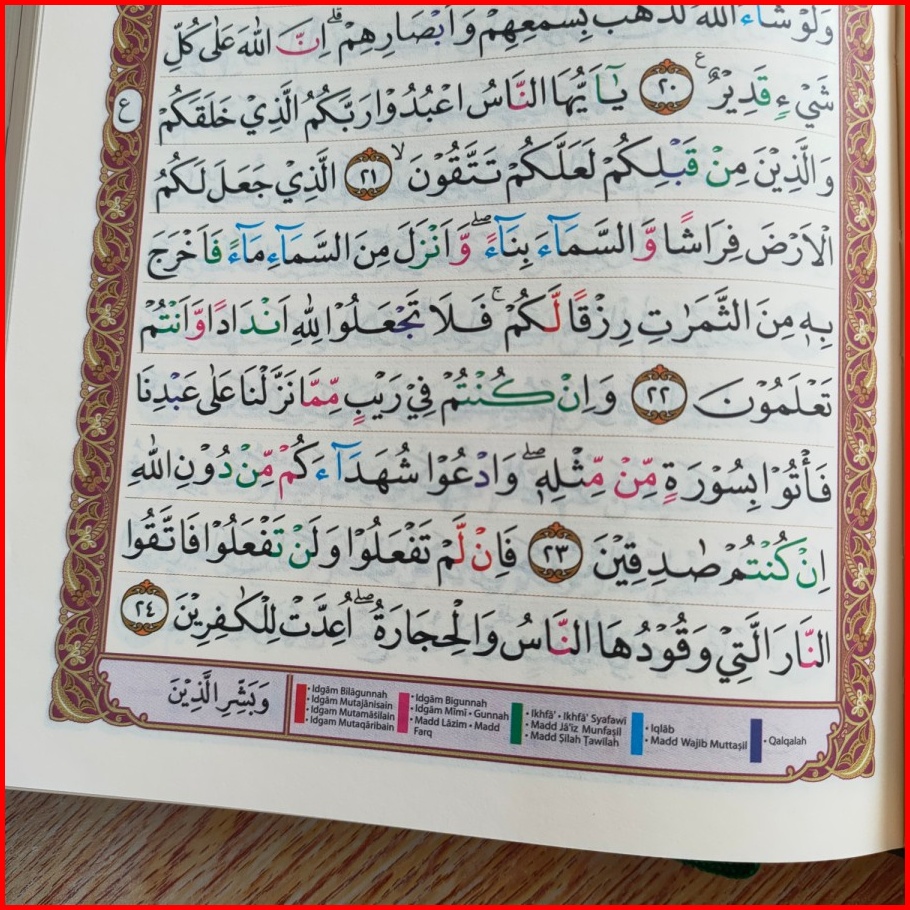 وَلَوْ شَاۤءَ اللّٰهُ لَذَهَبَ بِسَمْعِهِمْ وَاَبْصَارِهِمْ ۗ اِنَّ اللّٰهَ عَلٰى كُلِّ
شَيْءٍ قَدِيْرٌ ࣖ ٢٠ يٰٓاَيُّهَا النَّاسُ اعْبُدُوْا رَبَّكُمُ الَّذِيْ خَلَقَكُمْ
ع
وَالَّذِيْنَ مِنْ قَبْلِكُمْ لَعَلَّكُمْ تَتَّقُوْنَ ۙ ٢١ الَّذِيْ جَعَلَ لَكُمُ
الْاَرْضَ فِرَاشًا وَّالسَّمَاۤءَ بِنَاۤءً ۖ وَّاَنْزَلَ مِنَ السَّمَاۤءِ مَاۤءً فَاَخْرَجَ
بِهٖ مِنَ الثَّمَرٰتِ رِزْقًا لَّكُمْ ۚ فَلَا تَجْعَلُوْا لِلّٰهِ اَنْدَادًا وَّاَنْتُمْ
تَعْلَمُوْنَ ٢٢ وَاِنْ كُنْتُمْ فِيْ رَيْبٍ مِّمَّا نَزَّلْنَا عَلٰى عَبْدِنَا
فَأْتُوْا بِسُوْرَةٍ مِّنْ مِّثْلِهٖ ۖ وَادْعُوْا شُهَدَاۤءَكُمْ مِّنْ دُوْنِ اللّٰهِ
اِنْ كُنْتُمْ صٰدِقِيْنَ ٢٣ فَاِنْ لَّمْ تَفْعَلُوْا وَلَنْ تَفْعَلُوْا فَاتَّقُوا
النَّارَ الَّتِيْ وَقُوْدُهَا النَّاسُ وَالْحِجَارَةُ ۖ اُعِدَّتْ لِلْكٰفِرِيْنَ ٢٤
وَبَشِّرِ الَّذِيْنَ
• Idgām Bilāgunnah
• Idgām Mutajānisain
• Idgām Mutamāṡilain
• Idgam Mutaqāribain
• Idgām Bigunnah
• Idgām Mīmī • Gunnah
• Madd Lāzim • Madd
Farq
• Ikhfā' • Ikhfā' Syafawī
• Madd Jā'iz Munfaṣil
• Madd Ṣilah Ṭawīlah
• Iqlāb
• Madd Wajib Muttaṣil
• Qalqalah